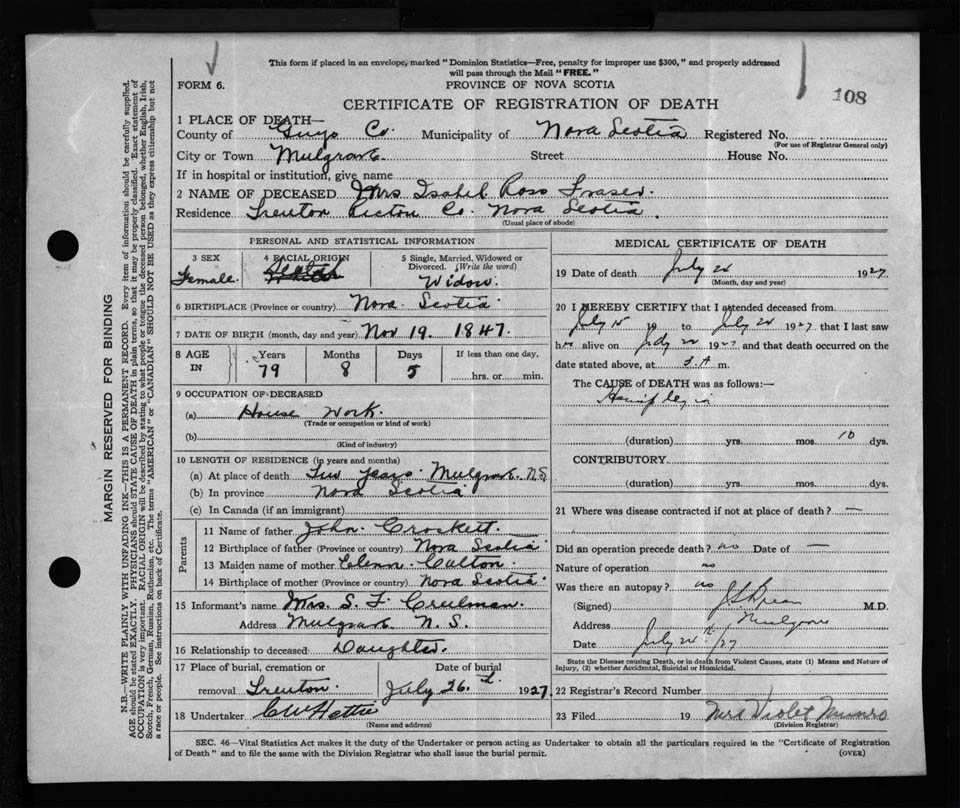 This form if placed in an envelope, marked "Dominion Statistics—Free, penalty for improper use $300," and properly addressed
will pass through the Mail "FREE."
FORM 6.
PROVINCE OF NOVA SCOTIA
108
CERTIFICATE OF REGISTRATION OF DEATH
1 PLACE OF DEATH—
County of Guys Co. Municipality of Nova Scotia Registered No.
(For use of Registrar General only)
City or Town Mulgrave Street House No.
If in hospital or institution, give name
2 NAME OF DECEASED Mrs. Isabel Ross Fraser.
Residence Trenton Pictou Co. Nova Scotia.
(Usual place of abode)
PERSONAL AND STATISTICAL INFORMATION
3 SEX
Female.
4 RACIAL ORIGIN
Scotch
5 Single, Married, Widowed or
Divorced. (Write the word)
Widow.
6 BIRTHPLACE (Province or country) Nova Scotia
7 DATE OF BIRTH (month, day and year) Nov 19. 1847.
8 AGE IN
Years 79
Months 8
Days 5
If less than one day,
hrs. or min.
9 OCCUPATION OF DECEASED
(a) House Work.
(Trade or occupation or kind of work)
(b)
(Kind of industry)
10 LENGTH OF RESIDENCE (in years and months)
(a) At place of death years. Mulgrave. N.S
(b) In province Nova Scotia
(c) In Canada (if an immigrant)
Parents
11 Name of father John Crockett
12 Birthplace of father (Province or country) Nova Scotia
13 Maiden name of mother
14 Birthplace of mother (Province or country) Nova Scotia
15 Informant's name Mrs. S. F. Creelman.
Address Mulgrave N. S.
16 Relationship to deceased Daughter.
17 Place of burial, cremation or
removal Trenton.
Date of burial
July 26 1927.
18 Undertaker
(Name and address)
MEDICAL CERTIFICATE OF DEATH
19 Date of death July 24 1927
(Month, day and year)
20 I HEREBY CERTIFY that I attended deceased from
July 15 19 to July 24 1927 that I last saw
her alive on July 1927 and that death occurred on the
date stated above, at m.
The CAUSE of DEATH was as follows:—
Hemiplegia
(duration) yrs. mos. 10 dys.
CONTRIBUTORY
(duration) yrs. mos. dys.
21 Where was disease contracted if not at place of death? —
Did an operation precede death? no Date of —
Nature of operation no
Was there an autopsy? no
(Signed) M.D.
Address Mulgrave
Date July 24th/27
State the Disease causing Death, or in death from Violent Causes, state (1) Means and Nature of
Injury, (2) whether Accidental, Suicidal or Homicidal.
22 Registrar's Record Number
23 Filed 19 Mrs Violet Munro
(Division Registrar)
SEC. 46—Vital Statistics Act makes it the duty of the Undertaker or person acting as Undertaker to obtain all the particulars required in the "Certificate of Registration
of Death" and to file the same with the Division Registrar who shall issue the burial permit.
(OVER)
MARGIN RESERVED FOR BINDING
N.B.—WRITE PLAINLY WITH UNFADING INK—THIS IS A PERMANENT RECORD. Every item of information should be carefully supplied.
AGE should be stated EXACTLY. PHYSICIANS should STATE CAUSE OF DEATH in plain terms, so that it may be properly classified. Exact statement of
OCCUPATION is very important. RACIAL ORIGIN will be described by stating to what people or tongue the deceased person belonged, whether English, Irish,
Scotch, French, German, Russian, Ruthenian, etc. The terms "AMERICAN" or "CANADIAN" SHOULD NOT BE USED as they express citizenship but not
a race or people. See instructions on back of Certificate.